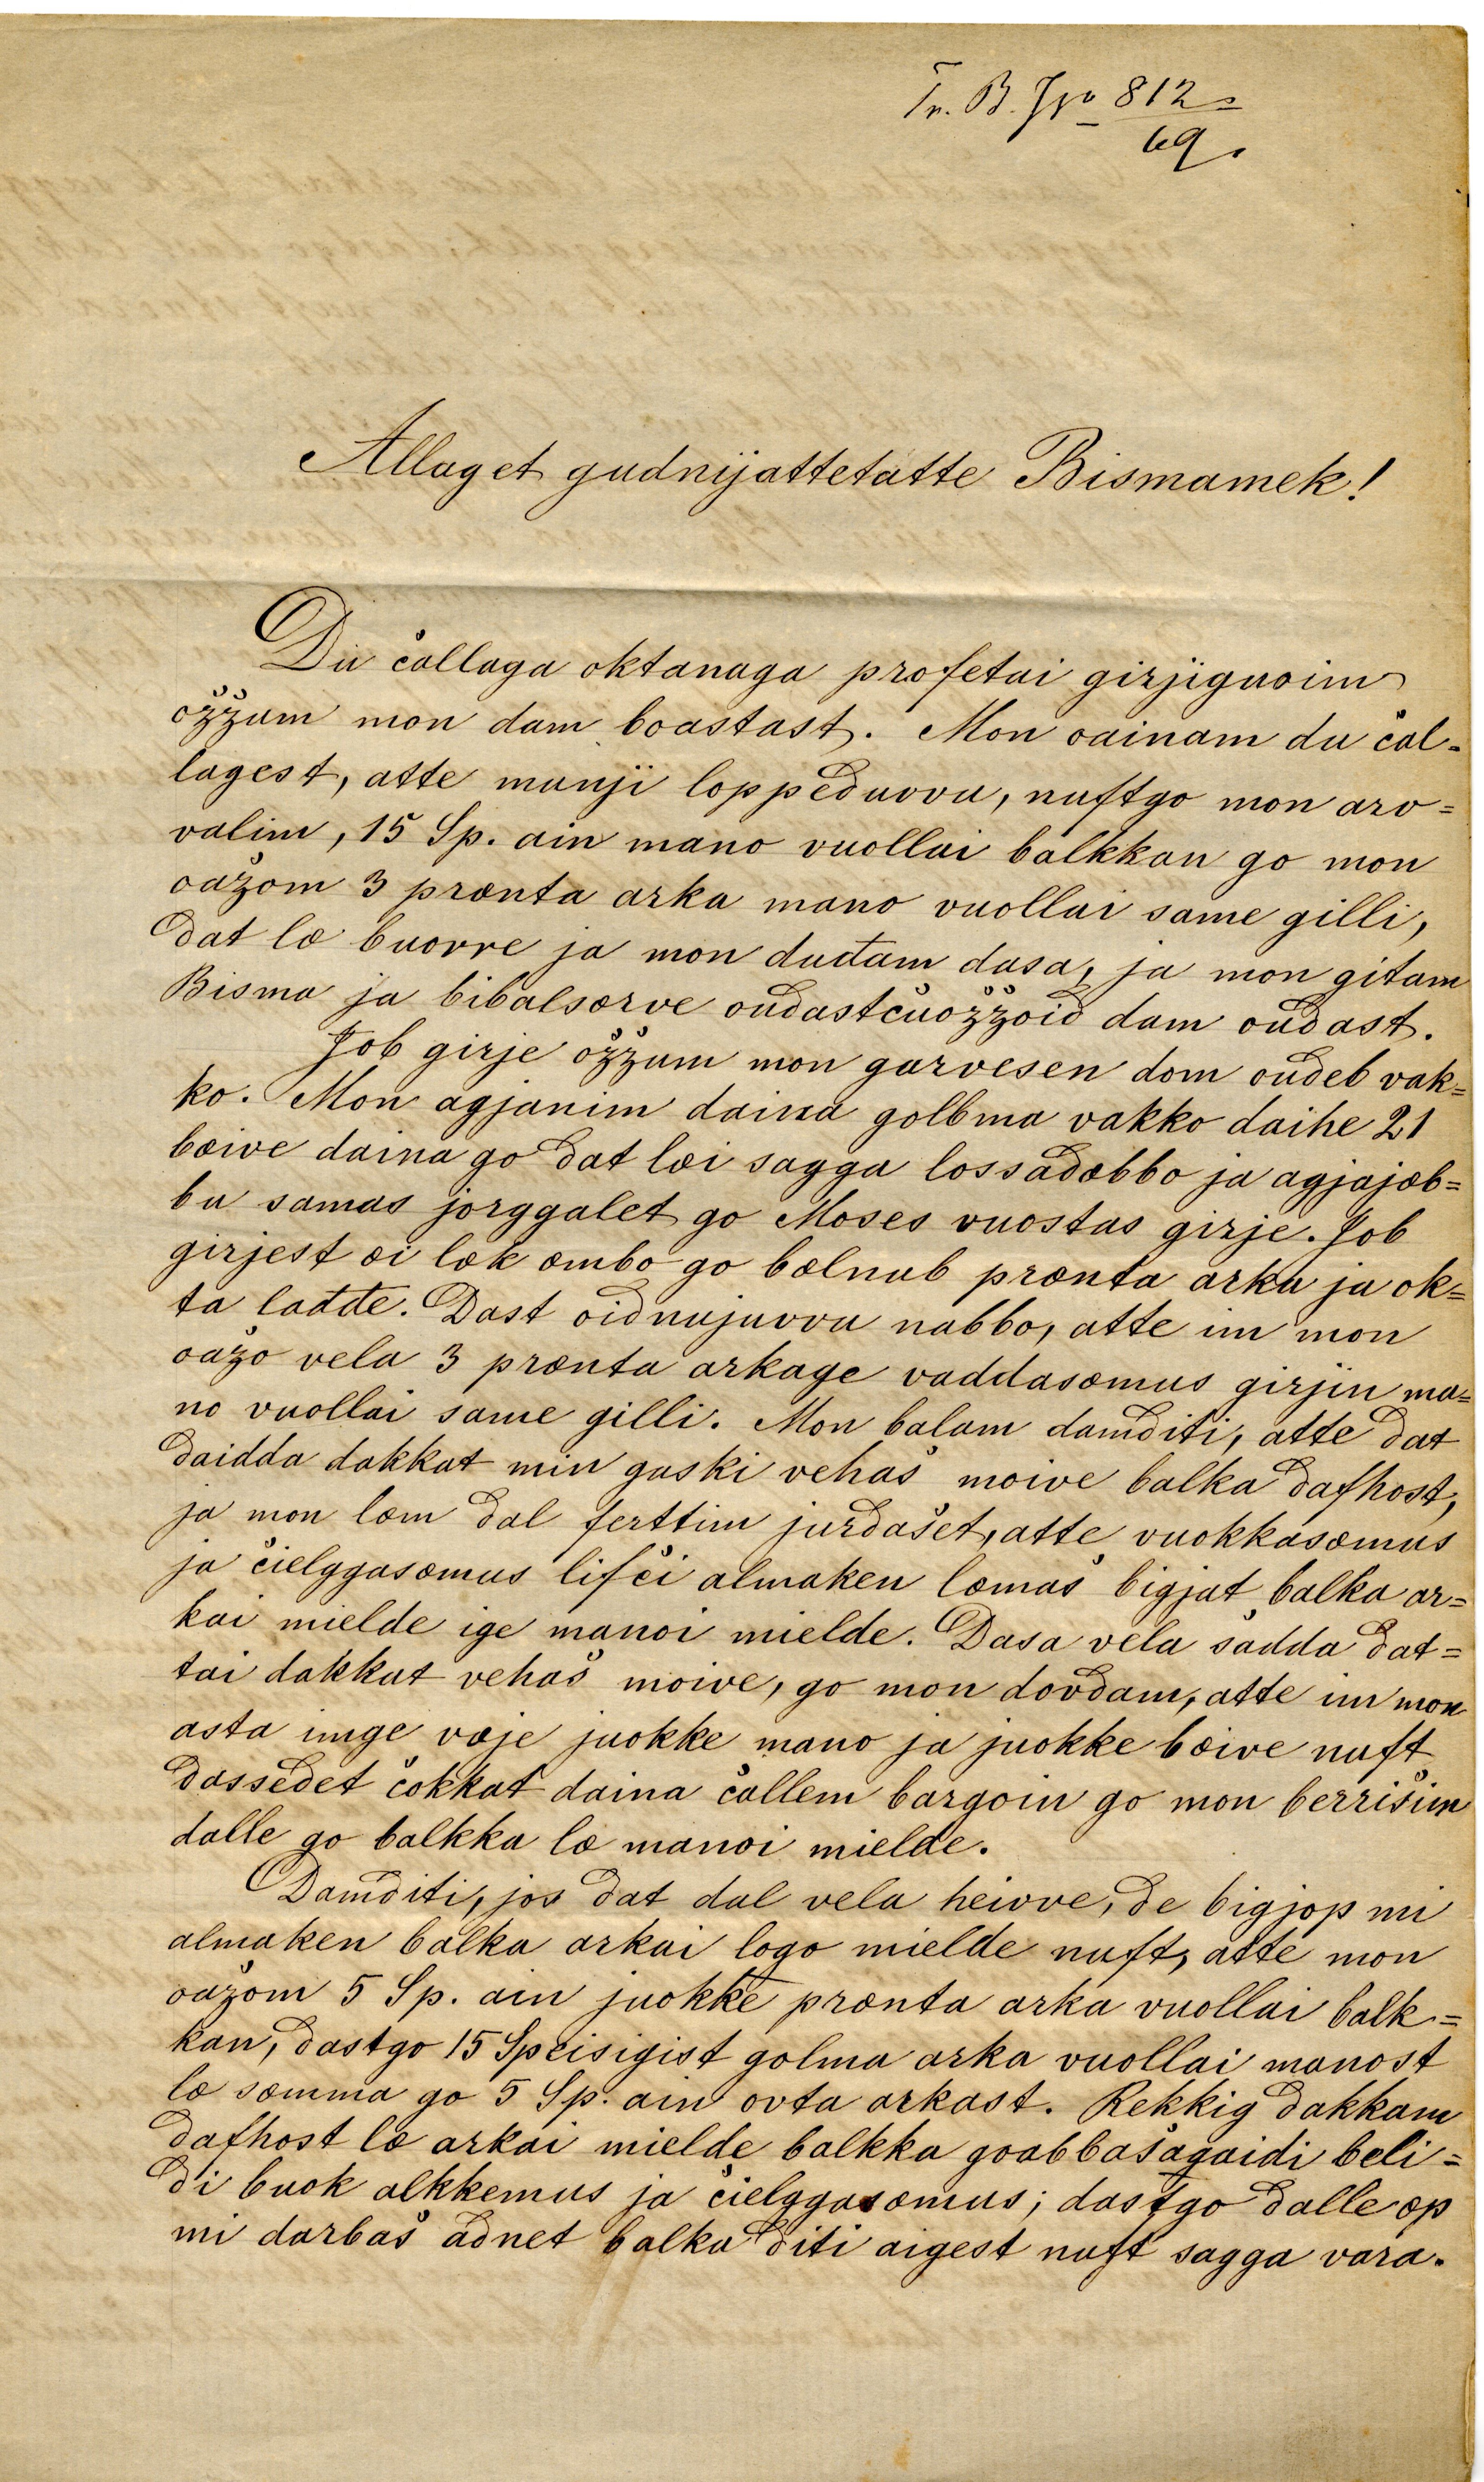 Tr. B. Jno 812
69.
Allaget gudnijattetatte Bismamek!
Du čallaga oktanaga profetai girjiguoim
ožžum mon dam boastast. Mon oainam du čal-
lagest, atte munji loppeduvvu, nuftgo mon arv=
valim, 15 Sp. ain mano vuollai balkkan go mon
oažom 3 prænta arka mano vuollai same gilli,
Dat læ buorre ja mon duđam dasa, ja mon gitam
Bisma ja bibalsærve ouđastčuožžoid dam ouđast.
Job girje ožžum mon garvesen dom ouđeb vak=
ko. Mon agjanim daina golbma vakko daihe 21
bæive daina go dat læi sagga lossađæbbo ja agjajæb=
bu samas jorggalet go Moses vuostas girje. Job
girjest æi læk æmbo go bælnub prænta arka ja ok=
ta lađđe. Dast oidnujuvvu nabbo, atte im mon
oažo vela 3 prænta arkage vaddasæmus girjin ma=
no vuollai same gilli. Mon balam damditi, atte dat
daidda dakkat min gaski vehaš moive balka dafhost,
ja mon læm dal ferttim jurdašet, atte vuokkasæmus
ja čielggasæmus lifči almaken læmaš bigjat balka ar=
kai mielde ige manoi mielde. Dasa vela šadda dat=
tai dakkat vehaš moive, go mon dovdam, atte im mon
asta imge væje juokke mano ja juokke bæive nuft
dassedet čokkat daina čallem bargoin go mon berrišim
dalle go balkka læ manoi mielde.
Damditi, jos dat dal vela heivve, de bigjop mi
almaken balka arkai logo mielde nuft, atte mon
oažom 5 Sp. ain juokke prænta arka vuollai balk=
kan, dastgo 15 Speisigist golma arka vuollai manost
læ sæmma go 5 Sp. ain ovta arkast. Rekkig dakkam
dafhost læ arkai mielde balkka goabbašagaidi beli=
di buok alkkemus ja čielggasæmus; dastgo dalle æp
mi darbaš adnet balka diti aigest nuft sagga vara.